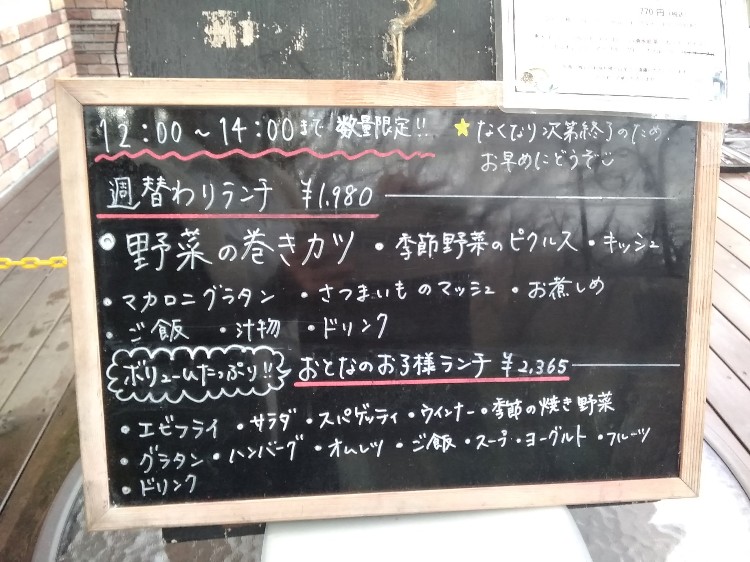 770円(税込)
12:00～14:00まで 数量限定!!
★なくなり次第終了のため、
お早めにどうぞ
週替わりランチ ¥1,980
・野菜の巻きカツ ・季節野菜のピクルス ・キッシュ
・マカロニグラタン ・さつまいものマッシュ ・お煮しめ
・ご飯 ・汁物 ・ドリンク
ボリュームたっぷり!! おとなのお子様ランチ ¥2,365
・エビフライ ・サラダ ・スパゲッティ ・ウインナー ・季節の焼き野菜
・グラタン ・ハンバーグ ・オムレツ ・ご飯 ・スープ ・ヨーグルト ・フルーツ
・ドリンク